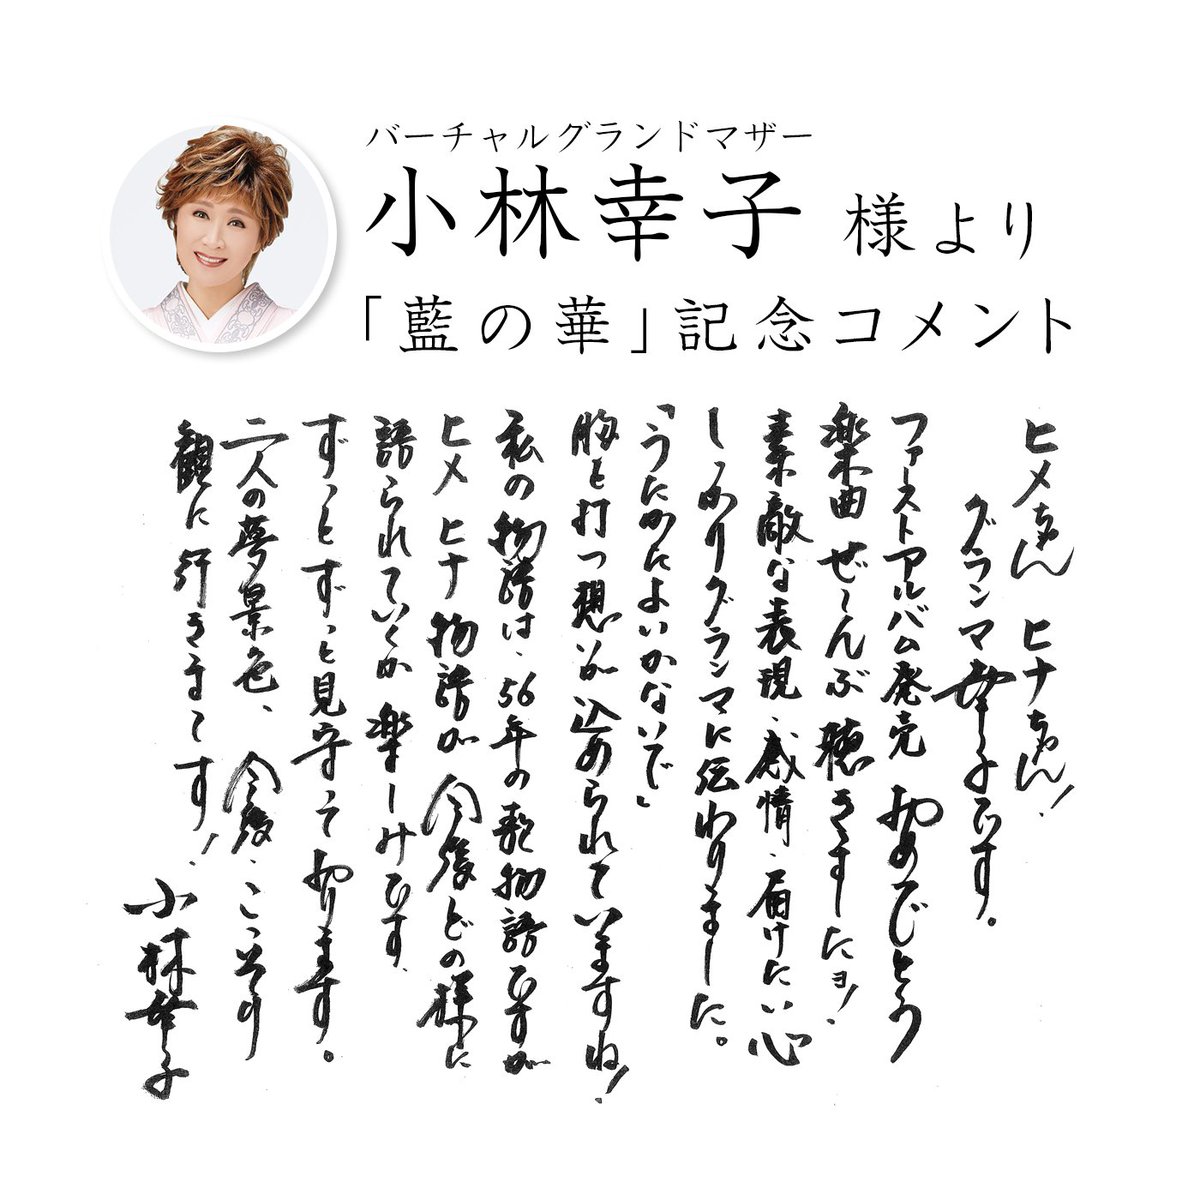 バーチャルグランドマザー
小林幸子 様より
「藍の華」記念コメント
ヒメちゃん ヒナちゃん!
グランマ幸子です。
ファーストアルバム発売 おめでとう
楽曲 ぜ〜んぶ聴きましたョ!
素敵な表現、感情、届けたい心
しっかりグランマに伝わりました。
「うたかたよいかないで」
胸を打つ想いが込められていますね!
私の物語は、56年の歌物語ですが
ヒメ ヒナ 物語が 今後どの様に
語られていくか 楽しみです、
ずっとずっと見守っております。
二人の夢景色、今後、こっそり
観に行きまーす!
小林幸子